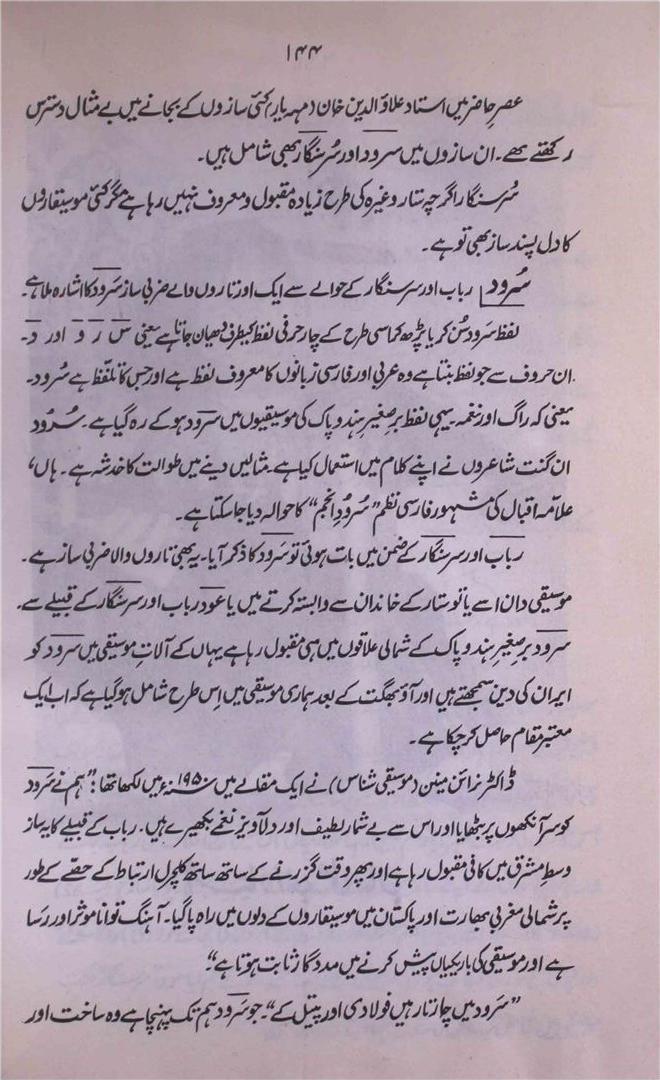 ۱۴۴
عصرِ حاضر میں استاد علاؤالدین خان (میہر یار) کئی سازوں کے بجانے میں بے مثال دسترس
رکھتے تھے۔ ان سازوں میں سرود اور سُرسنگار بھی شامل ہیں۔
سُرسنگار اگرچہ ستار وغیرہ کی طرح زیادہ مقبول و معروف نہیں رہا ہے مگر کئی موسیقاروں
کا دل پسند ساز بھی تو ہے۔
سُرود رباب اور سرسنگار کے حوالے سے ایک اور تاروں والے ضربی ساز سَرود کا اشارہ ملا ہے۔
لفظ سَرود سُن کر یا پڑھ کر اسی طرح کے چار حرفی لفظ کیطرف دھیان جاتا ہے یعنی س ر و اور د۔
ان حروف سے جو لفظ بنتا ہے وہ عربی اور فارسی زبانوں کا معروف لفظ ہے اور جس کا تلفّظ ہے سُرود۔
یعنی کہ راگ اور نغمہ۔ یہی لفظ برِصغیرِ ہند و پاک کی موسیقیوں میں سَرود ہو کے رہ گیا ہے۔ سُرُود
ان گنت شاعروں نے اپنے کلام میں استعمال کیا ہے۔ مثالیں دینے میں طوالت کا خدشہ ہے۔ ہاں،
علاّمہ اقبال کی مشہور فارسی نظم "سُرودِ انجم" کا حوالہ دیا جا سکتا ہے۔
رباب اور سرسنگار کے ضمن میں بات ہوئی تو سَرود کا ذکر آیا۔ یہ بھی تاروں والا ضربی ساز ہے۔
موسیقی دان اسے یا تو ستار کے خاندان سے وابستہ کرتے ہیں یا عود رباب اور سرسنگار کے قبیلے سے۔
سرود برِصغیر ہند و پاک کے شمالی علاقوں میں ہی مقبول رہا ہے یہاں کے آلاتِ موسیقی میں سرود کو
ایران کی دین سمجھتے ہیں اور آؤ بھگت کے بعد ہماری موسیقی میں اِس طرح شامل ہو گیا ہے کہ اب ایک
معتبر مقام حاصل کر چکا ہے۔
ڈاکٹر نرائن مینن (موسیقی شناس) نے ایک مقالے میں ۱۹۵۰ء میں لکھا تھا: "ہم نے سَرود
کو سر آنکھوں پر بٹھایا اور اس سے بے شمار لطیف اور دلآویز نغمے بکھیرے ہیں۔ رباب کے قبیلے کا یہ ساز
وسطِ مشرق میں کافی مقبول رہا ہے اور پھر وقت گزرنے کے ساتھ ساتھ کلچرل ارتباط کے حصّے کے طور
پر شمالی مغربی بھارت اور پاکستان میں موسیقاروں کے دلوں میں راہ پا گیا۔ آہنگ توانا موثر اور رسا
ہے اور موسیقی کی باریکیاں پیش کرنے میں مددگار ثابت ہوتا ہے"۔
"سرود میں چار تار ہیں فولادی اور پیتل کے"۔ جو سَرود ہم تک پہنچا ہے وہ ساخت اور